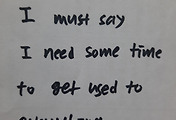 I must say
I need some time
to get used to